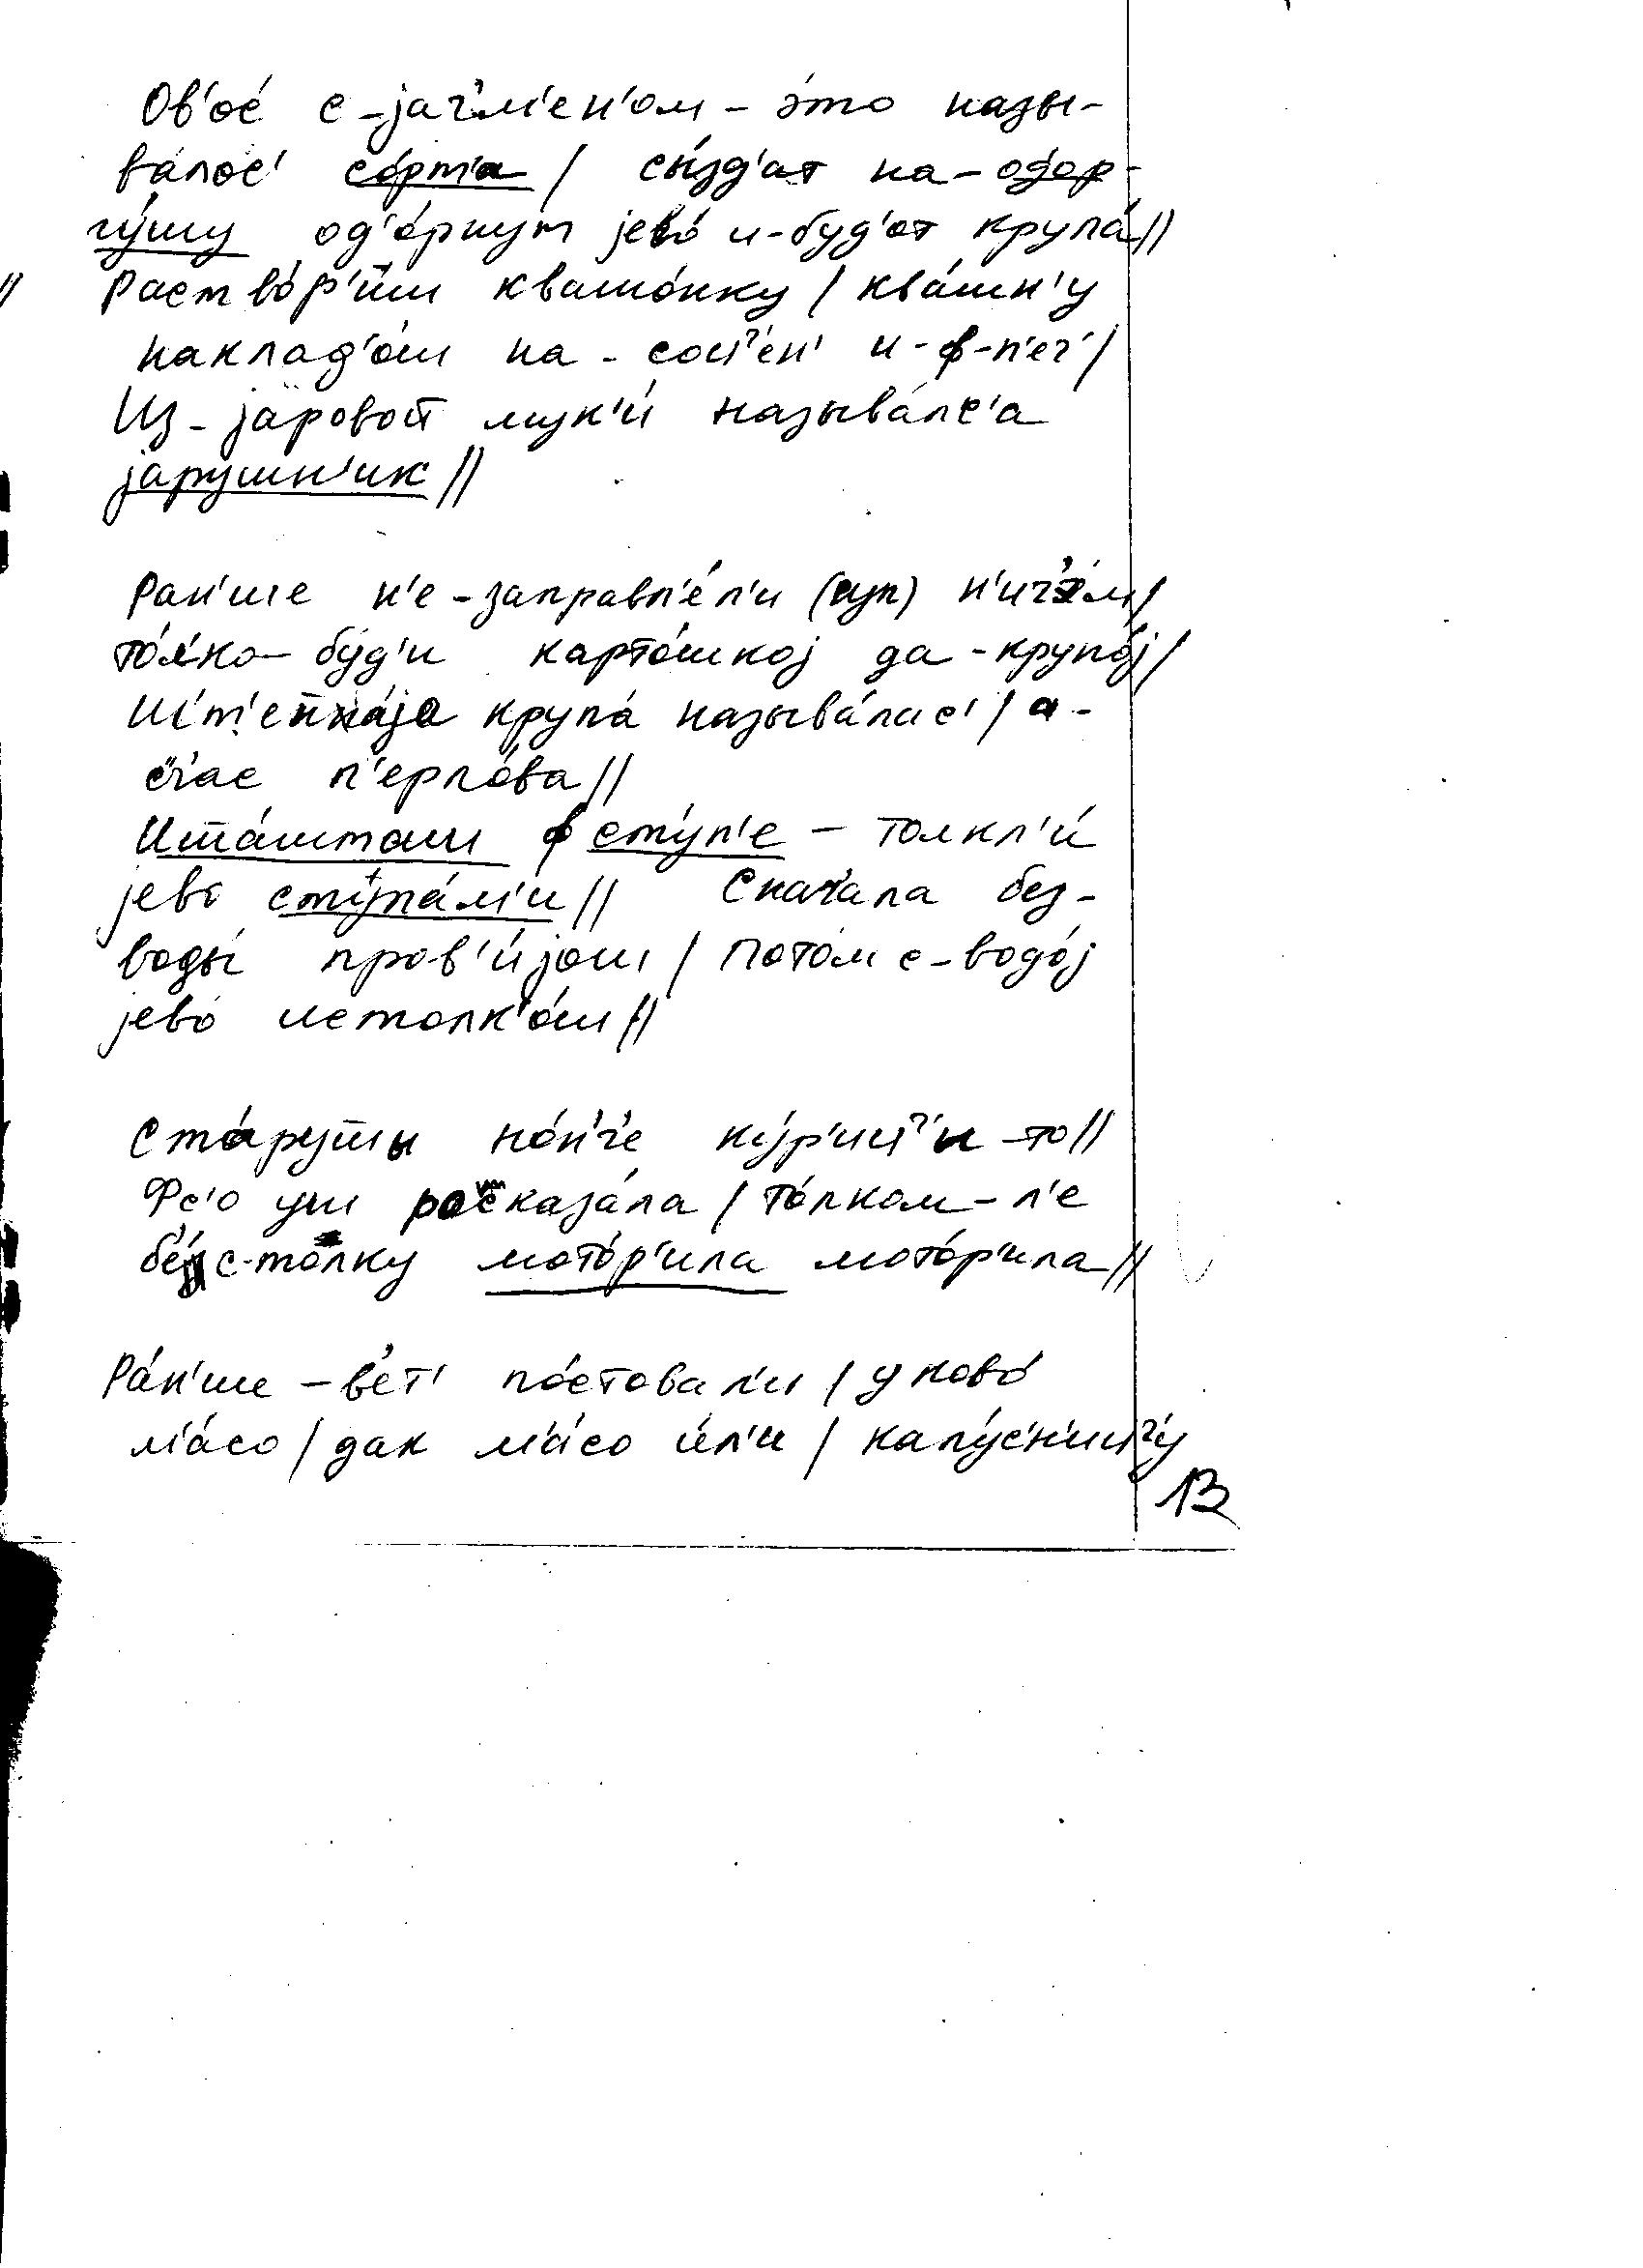 Ов'ос с-јач'м'ен'ом – э́то назы-
ва́лос' со́рт'а / сјэзд'ат на-одор-
гу́шу од'о́рнут јево́ и-буд'от крупа́ //
Раство́р'иш квашо́нку / ква́шн'у
наклад'о́ш на-соч'ен' и-ф-п'еч' /
Из-јаровой мук'и́ называ́лс'а
јарушн'ик //
Ран'ше н'е-заправл'е́л'и (суп) н'ич'е́м /
то́л'ко-бу́д'и карто́шкој да-крупо́ј /
крупа́ называ́лас' / а-
с'час п'ерло́ва //
ф сту́п'е – толкл'и́
јево ступа́м'и // Сначала без-
воды́ пров'и́још / пото́м с-водо́ј
јево́ истолк'о́ш //
Ста́рушы но́н'ч'е
Фс'о уш росказа́ла / то́лком-л'е
бе́с-толку мото́р'ила мото́р'ила //
Ра́н'ше-в'ет' по́стовал'и / у ково́
м'а́со / дак м'а́со и́л'и /
13